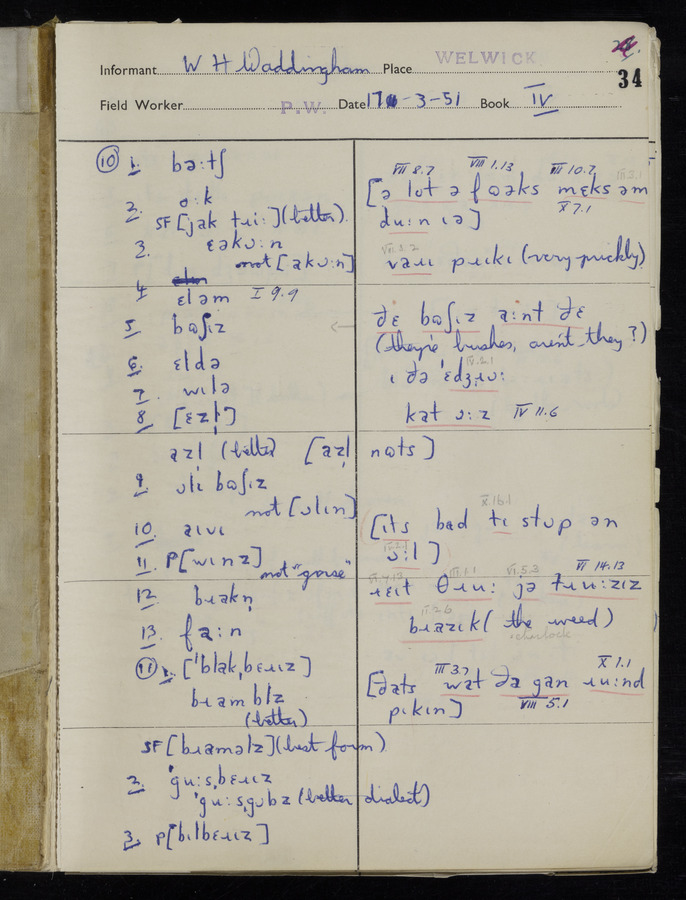 34
Informant W H Waddingham Place WELWICK
Field Worker P.W. Date 17-3-51 Book IV
⑩ 1. bə:tʃ
2. o:k
SF [jak tɹi:] (better).
3. ɛakʊ:n
not [akʊ:n]
4. ɛləm I 9.9
5. bʊʃɪz
6. ɛldə
7. wɪlə
8. [ɛzl̩]
azl̩ (better) [azl̩ nʊts]
9. ʊlɪ bʊʃɪz
not [ʊlɪn]
10. aɪvɪ
11. P[wɪnz]
not "gorse"
12. bɹakn̩
13. fa:n
⑪ 1. ['blak,bɛɹɪz]
bɹamblz
(better)
SF [bɹaməlz] (best form)
2. 'gu:s,bɛɹɪz
'gu:s,gʊbz (better dialect)
3. P[bɪlbɛɹɪz]
VIII 8.7 VIII 1.13 III 10.7 III 3.1
[ə lɒt ə fʊəks mɛks əm
X 7.1
du:n ɪə]
VII 3.2
vaɹɪ pɹɪkɪ (very prickly)
ðɛ bʊʃɪz a:nt ðɛ
(they're bushes, aren't they?)
IV 2.1
ɪ ðə 'ɛdʒɹʊ:
kat ʊ:z IV 11.6
X 1b.1
[ɪts bad tɪ stɒp ən
ʊ:l]
VI 14.13
III 1.1 VI 5.3
ɹɛɪt θɹu: jə tɹu:zɪz
II 2.6
bɹazɪk (the weed)
charlock
III 3.7 X 1.1
[ðats wat ðə gan ɹu:nd
VIII 5.1
pɪkɪn]